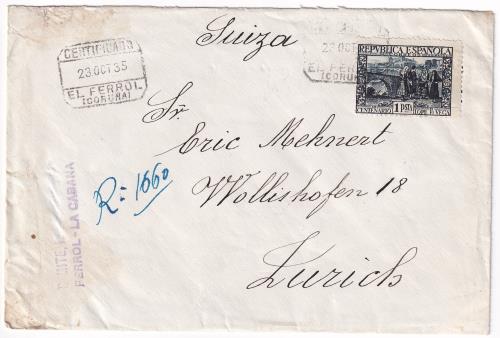 Suiza
CERTIFICADO
23 OCT 35
EL FERROL
(CORUÑA)
23 OCT
EL FERROL
(CORUÑA)
REPVBLICA ESPAÑOLA
CENTENARIO 1 PTA LOPE D VEGA
Sr.
Eric Mehnert
Wollishofen 18
Zurich
R = 1660
FERROL - LA CABANA